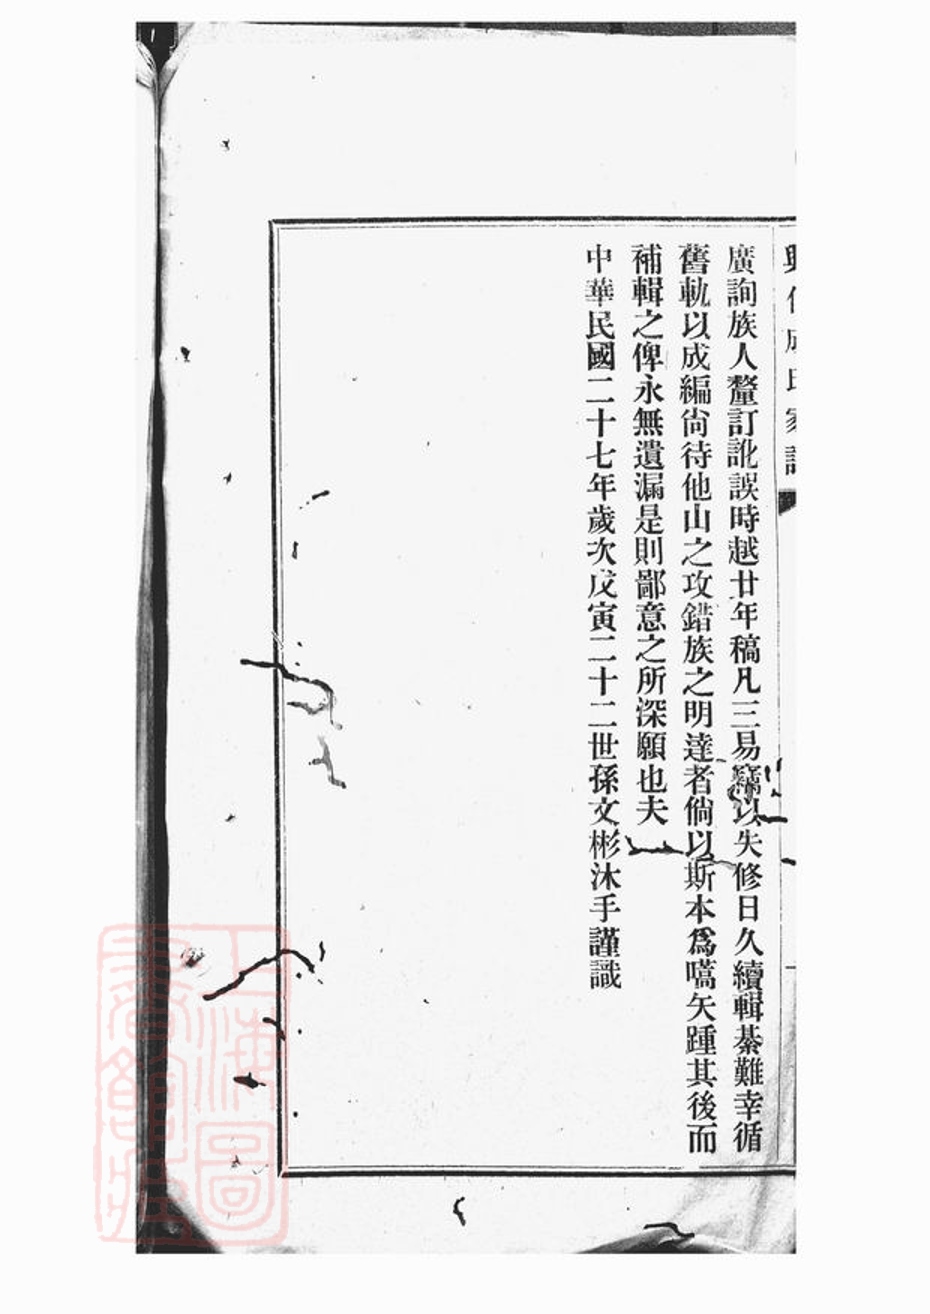 廣詢族人釐訂訛誤時越廿年稿凡三易竊以失修日久續輯綦難幸循
舊軌以成編尙待他山之攻錯族之明達者倘以斯本爲嚆矢踵其後而
補輯之俾永無遺漏是則鄙意之所深願也夫
中華民國二十七年歲次戊寅二十二世孫文彬沐手謹識
上海圖
書館藏